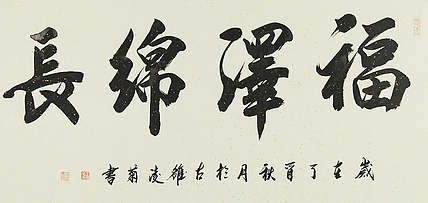 福澤綿長
歲在丁酉秋月於古凌菊書